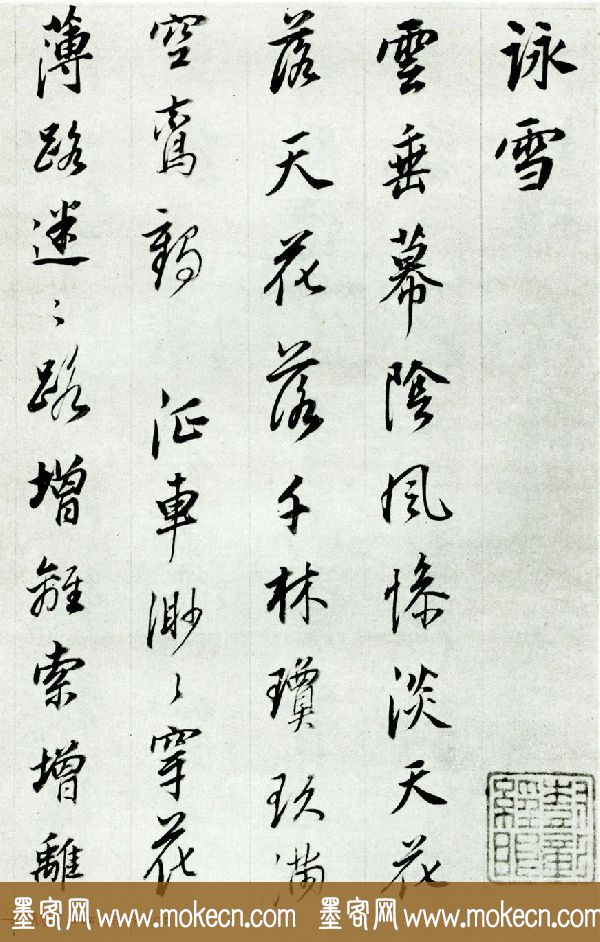 詠雪
雲垂幕陰風慘淡天花
落天花落千林瓊玖滿
空鸞鶴 征車渺〻穿花
薄路迷〻路增離索增離
墨客网 www.mokecn.com 墨客网 www.mokecn.com